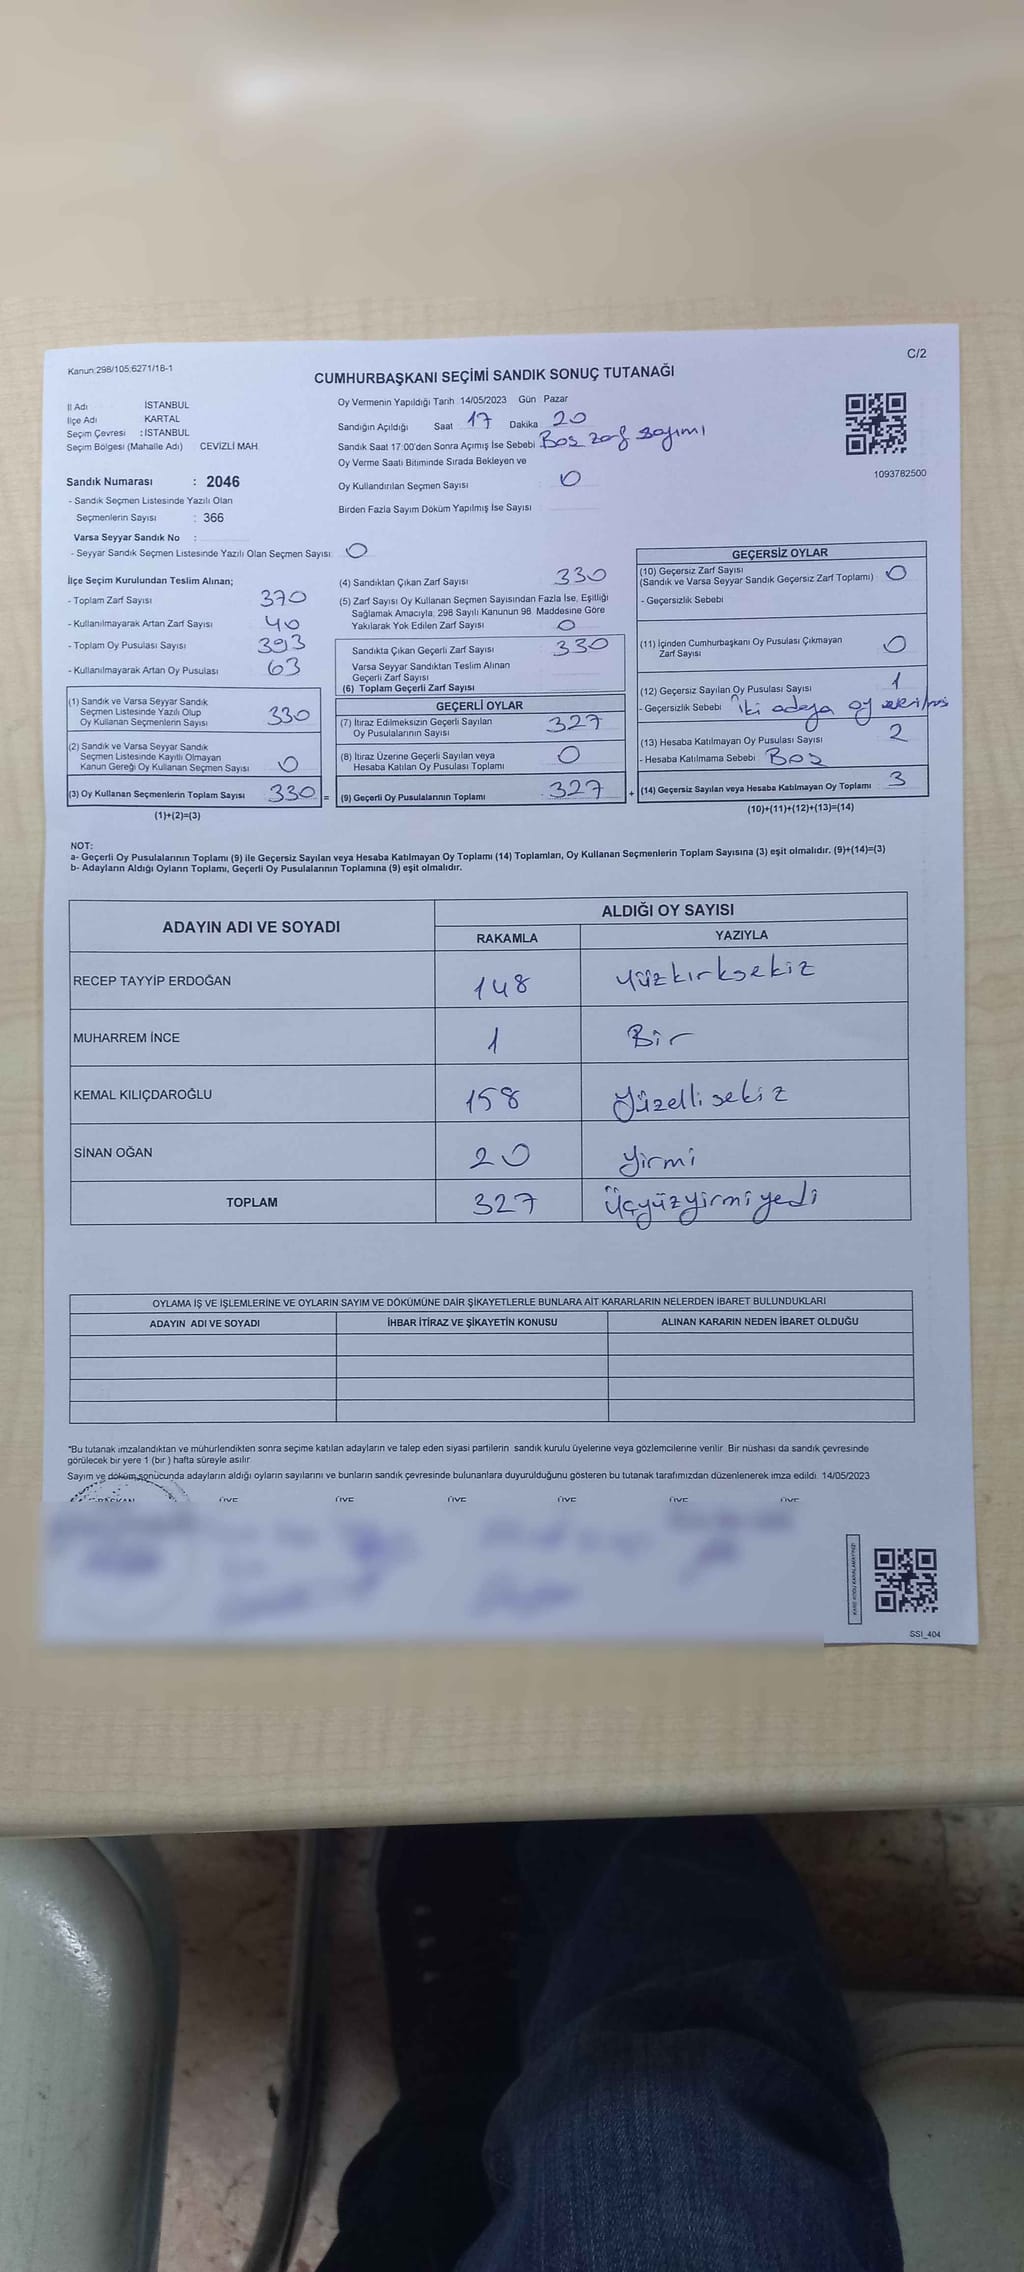 Kanun:298/105:6271/18-1
C/2
CUMHURBAŞKANI SEÇİMİ SANDIK SONUÇ TUTANAĞI
İl Adı İSTANBUL
İlçe Adı KARTAL
Seçim Çevresi : İSTANBUL
Seçim Bölgesi (Mahalle Adı) CEVİZLİ MAH.
Sandık Numarası : 2046
- Sandık Seçmen Listesinde Yazılı Olan
Seçmenlerin Sayısı : 366
Varsa Seyyar Sandık No :
- Seyyar Sandık Seçmen Listesinde Yazılı Olan Seçmen Sayısı: 0
Oy Vermenin Yapıldığı Tarih 14/05/2023 Gün Pazar
Sandığın Açıldığı Saat 17 Dakika 20
Sandık Saat 17:00'den Sonra Açımış İse Sebebi Boş zarf sayımı
Oy Verme Saati Bitiminde Sırada Bekleyen ve
Oy Kullandırılan Seçmen Sayısı 0
Birden Fazla Sayım Döküm Yapılmış İse Sayısı
1093782500
İlçe Seçim Kurulundan Teslim Alınan;
- Toplam Zarf Sayısı 370
- Kullanılmayarak Artan Zarf Sayısı 40
- Toplam Oy Pusulası Sayısı 393
- Kullanılmayarak Artan Oy Pusulası 63
(1) Sandık ve Varsa Seyyar Sandık
Seçmen Listesinde Yazılı Olup
Oy Kullanan Seçmenlerin Sayısı 330
(2) Sandık ve Varsa Seyyar Sandık
Seçmen Listesinde Kayıtlı Olmayan
Kanun Gereği Oy Kullanan Seçmen Sayısı 0
(3) Oy Kullanan Seçmenlerin Toplam Sayısı 330 =
(1)+(2)=(3)
(4) Sandıktan Çıkan Zarf Sayısı 330
(5) Zarf Sayısı Oy Kullanan Seçmen Sayısından Fazla İse, Eşitliği
Sağlamak Amacıyla, 298 Sayılı Kanunun 98. Maddesine Göre
Yakılarak Yok Edilen Zarf Sayısı 0
Sandıkta Çıkan Geçerli Zarf Sayısı 330
Varsa Seyyar Sandıktan Teslim Alınan
Geçerli Zarf Sayısı
(6) Toplam Geçerli Zarf Sayısı
GEÇERLİ OYLAR
(7) İtiraz Edilmeksizin Geçerli Sayılan
Oy Pusulalarının Sayısı 327
(8) İtiraz Üzerine Geçerli Sayılan veya
Hesaba Katılan Oy Pusulası Toplamı 0
(9) Geçerli Oy Pusulalarının Toplamı 327 +
GEÇERSİZ OYLAR
(10) Geçersiz Zarf Sayısı
(Sandık ve Varsa Seyyar Sandık Geçersiz Zarf Toplamı) 0
- Geçersizlik Sebebi
(11) İçinden Cumhurbaşkanı Oy Pusulası Çıkmayan
Zarf Sayısı 0
(12) Geçersiz Sayılan Oy Pusulası Sayısı 1
- Geçersizlik Sebebi İki adaya oy verilmiş
(13) Hesaba Katılmayan Oy Pusulası Sayısı 2
- Hesaba Katılmama Sebebi Boş
(14) Geçersiz Sayılan veya Hesaba Katılmayan Oy Toplamı 3
(10)+(11)+(12)+(13)=(14)
NOT:
a- Geçerli Oy Pusulalarının Toplamı (9) ile Geçersiz Sayılan veya Hesaba Katılmayan Oy Toplamı (14) Toplamları, Oy Kullanan Seçmenlerin Toplam Sayısına (3) eşit olmalıdır. (9)+(14)=(3)
b- Adayların Aldığı Oyların Toplamı, Geçerli Oy Pusulalarının Toplamına (9) eşit olmalıdır.
ADAYIN ADI VE SOYADI ALDIĞI OY SAYISI
RAKAMLA YAZIYLA
RECEP TAYYİP ERDOĞAN 148 Yüzkırksekiz
MUHARREM İNCE 1 Bir
KEMAL KILIÇDAROĞLU 158 Yüzellisekiz
SİNAN OĞAN 20 Yirmi
TOPLAM 327 Üçyüzyirmiyedi
OYLAMA İŞ VE İŞLEMLERİNE VE OYLARIN SAYIM VE DÖKÜMÜNE DAİR ŞİKAYETLERLE BUNLARA AİT KARARLARIN NELERDEN İBARET BULUNDUKLARI
ADAYIN ADI VE SOYADI İHBAR İTİRAZ VE ŞİKAYETİN KONUSU ALINAN KARARIN NEDEN İBARET OLDUĞU
*Bu tutanak imzalandıktan ve mühürlendikten sonra seçime katılan adayların ve talep eden siyasi partilerin sandık kurulu üyelerine veya gözlemcilerine verilir. Bir nüshası da sandık çevresinde
görülecek bir yere 1 (bir ) hafta süreyle asılır.
Sayım ve döküm sonucunda adayların aldığı oyların sayılarını ve bunların sandık çevresinde bulunanlara duyurulduğunu gösteren bu tutanak tarafımızdan düzenlenerek imza edildi. 14/05/2023
BAŞKAN ÜYE ÜYE ÜYE ÜYE ÜYE ÜYE
KARE KODU KARALAMAYINIZ!
SSI_404